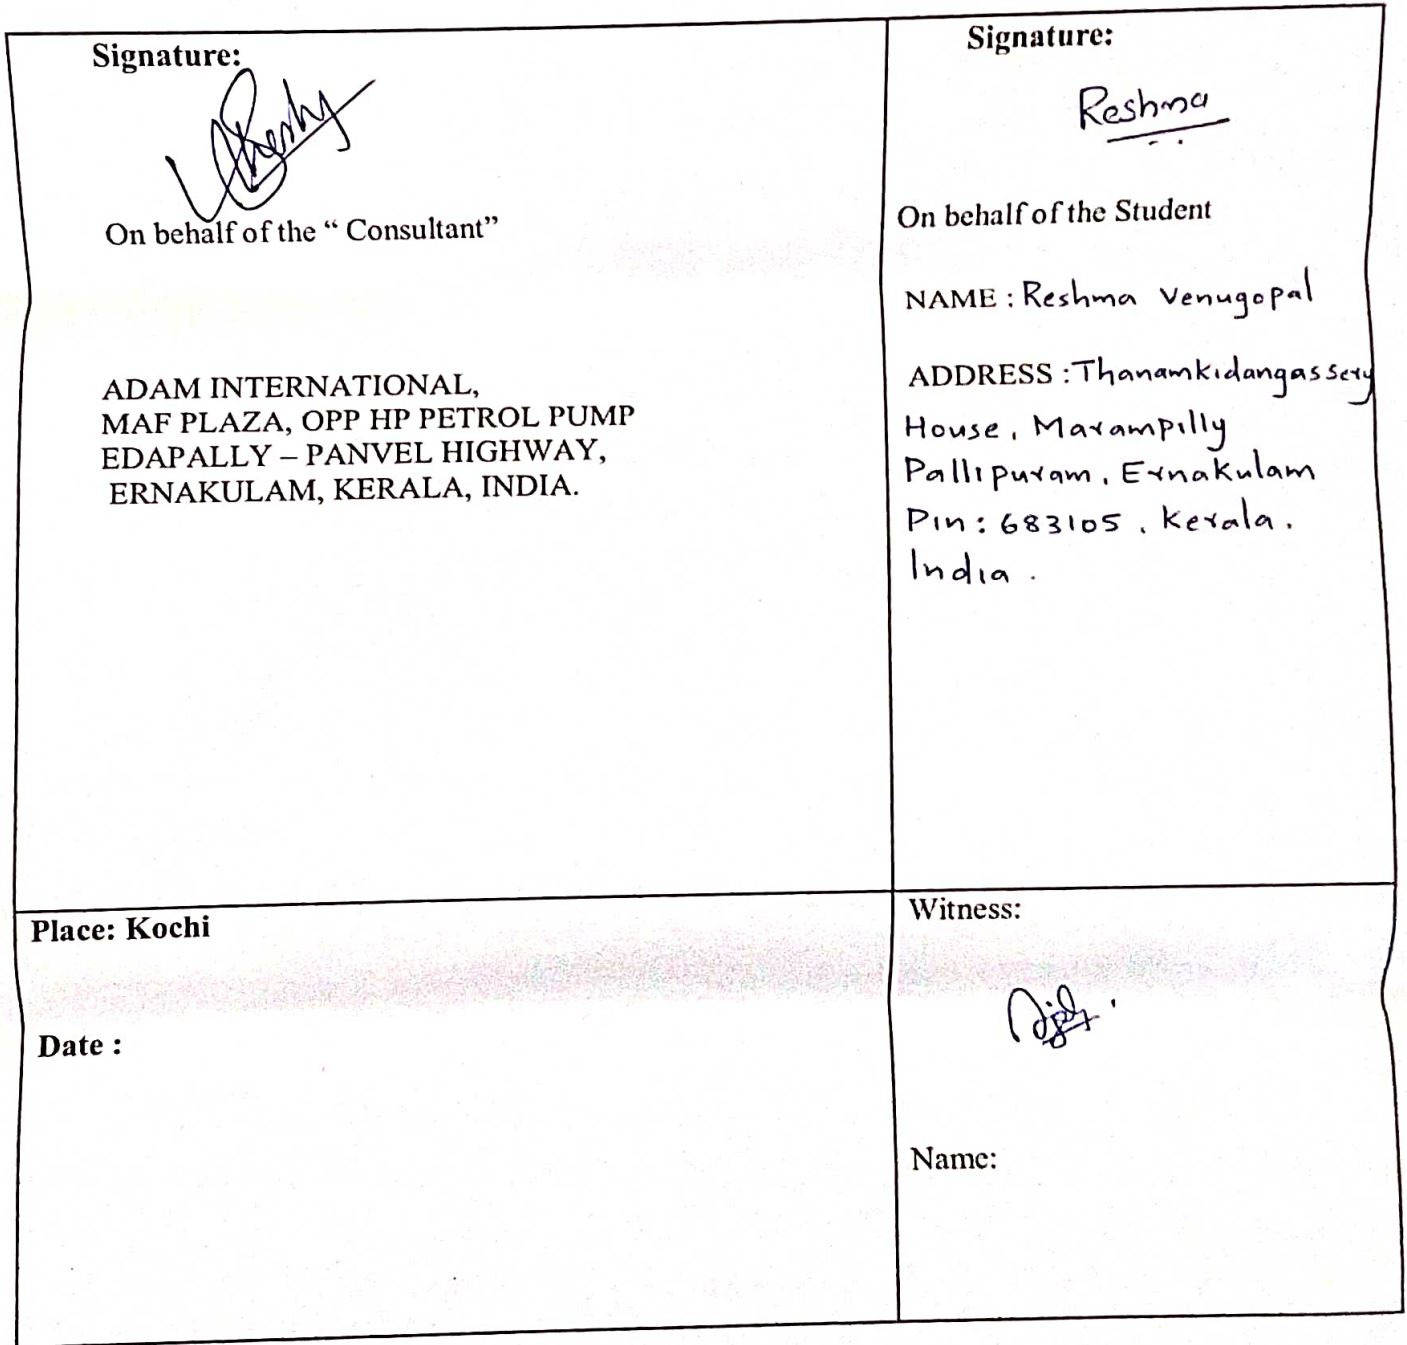 Signature:
On behalf of the “ Consultant”
ADAM INTERNATIONAL,
MAF PLAZA, OPP HP PETROL PUMP
EDAPALLY – PANVEL HIGHWAY,
ERNAKULAM, KERALA, INDIA.
Signature:
Reshma
On behalf of the Student
NAME : Reshma Venugopal
ADDRESS : Thanamkidangassery
House, Marampilly
Pallipuram, Ernakulam
Pin: 683105, Kerala.
India.
Place: Kochi
Date :
Witness:
Name: